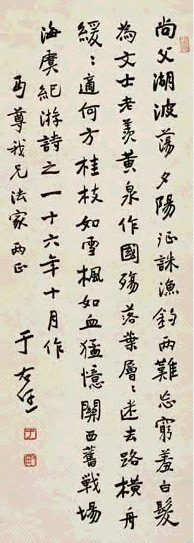 尚父湖波蕩夕陽征誅漁釣两難忘窮羞白髮
為文士老羨黃泉作國殤落葉層:迷去路橫舟
緩:適何方桂枝如雪楓如血猛憶關西舊戰場
海虞紀游詩之一十六年十月作
丏尊我兄法家两正
于右任